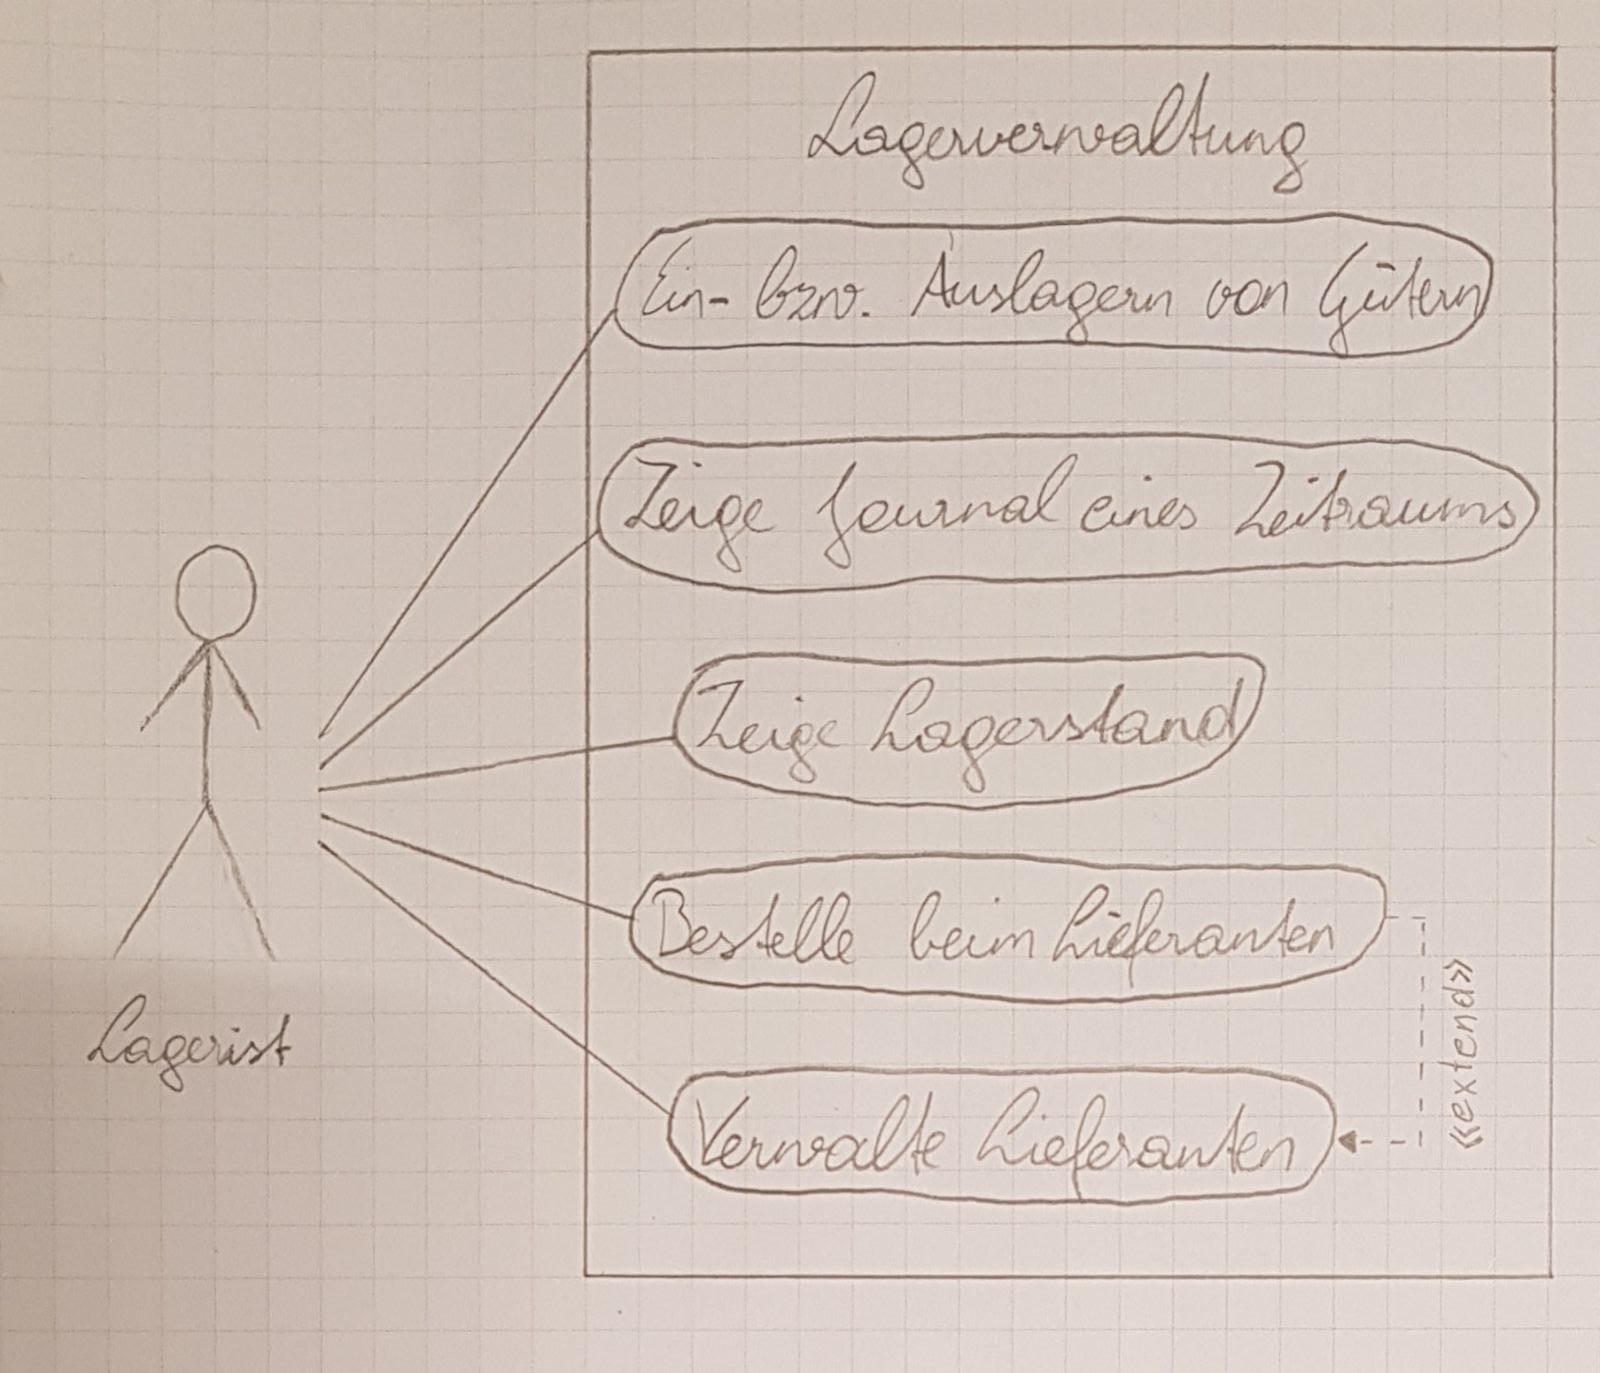 Lagerverwaltung
Ein- bzw. Auslagern von Gütern
Zeige Journal eines Zeitraums
Zeige Lagerstand
Bestelle beim Lieferanten
«extend»
Verwalte Lieferanten
Lagerist